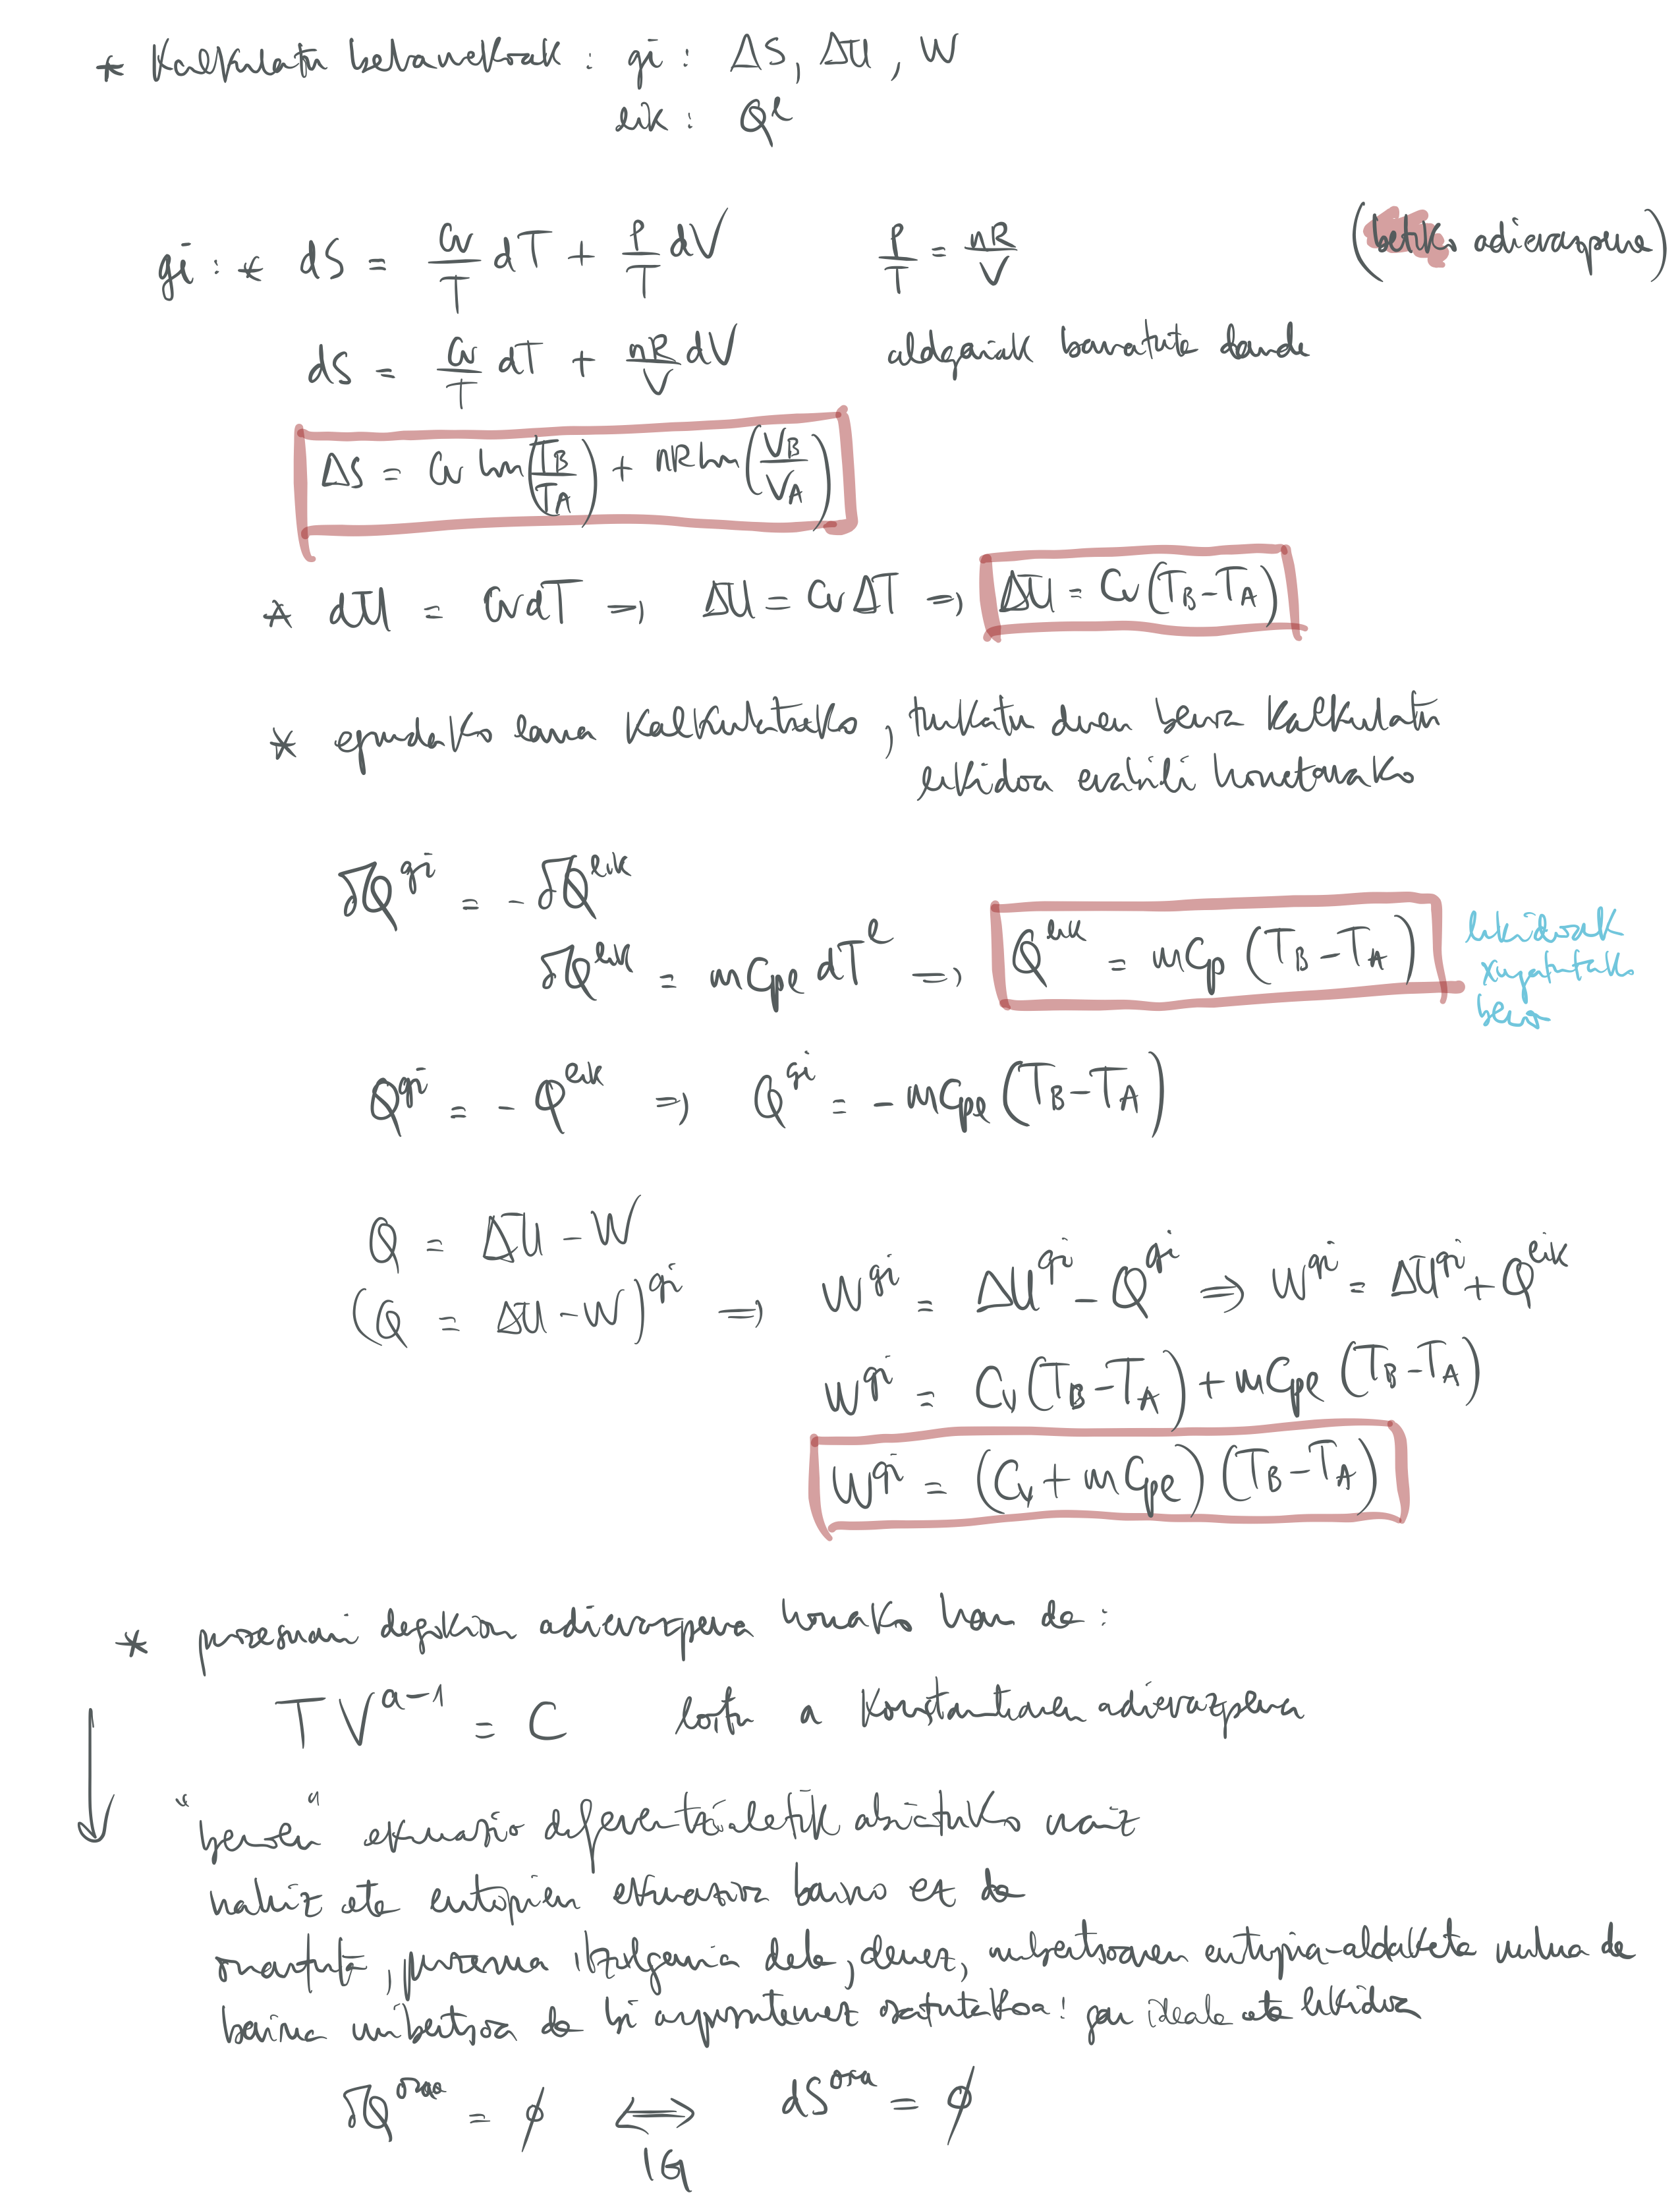 * Kalkulatu beharrekoak : gi : ΔS, ΔU, W
lik : Q^l
gi : * dS = Cv/T dT + P/T dV    P/T = nR/V    (betiko adierazpena)
dS = Cv/T dT + nR/V dV    aldagaiak banatuta daude
ΔS = Cv ln(TB/TA) + nR ln(VB/VA)
* dU = Cv dT ⇒ ΔU = Cv ΔT ⇒ ΔU = Cv (TB − TA)
* egindako lana kalkulatzeko, trukatu duen beroa kalkulatu
likidoa erabili horretarako
δQ^gi = − δQ^lik
δQ^lik = m Cpl dT^l ⇒ Q^lik = m Cp (TB − TA)    likidoak
xurgatutako
beroa
Q^gi = − Q^lik ⇒ Q^gi = − m Cpl (TB − TA)
Q = ΔU − W
(Q = ΔU − W)^gi ⇒ W^gi = ΔU^gi − Q^gi ⇒ W^gi = ΔU^gi + Q^lik
W^gi = Cv (TB − TA) + m Cpl (TB − TA)
W^gi = (Cv + m Cpl) (TB − TA)
* prozesuari dagokion adierazpena honako hau da :
T V^(a−1) = C    lortu a konstantearen adierazpena
"beroen" ekuazio diferentzialetik abiatuko naiz
nahiz eta entropien ekuazioa baino ez da
onartuta, prozesua itzulgarria dela, denez, unibertsoaren entropia-aldaketa nulua da
baina unibertsoa da bi azpisistemez osatutakoa : gas ideala eta likidoa
δQ^osoa = ϕ ⇔ dS^osoa = ϕ
IG